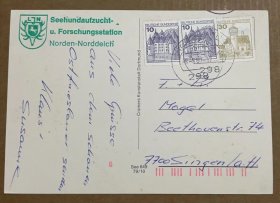 Seehundaufzucht-
u. Forschungsstation
Norden-Norddeich
LJN
Viele Grüsse
aus dem schönen
Ostfriesland senden
Klaus &
Susanne
10
10
30
DEUTSCHE BUNDESPOST
DEUTSCHE BUNDESPOST
DEUTSCHE BUNDESPOST
298
298
Fam.
Magel
Beethovenstr. 74
7700 Singen/a/H
Seo 649
79/10